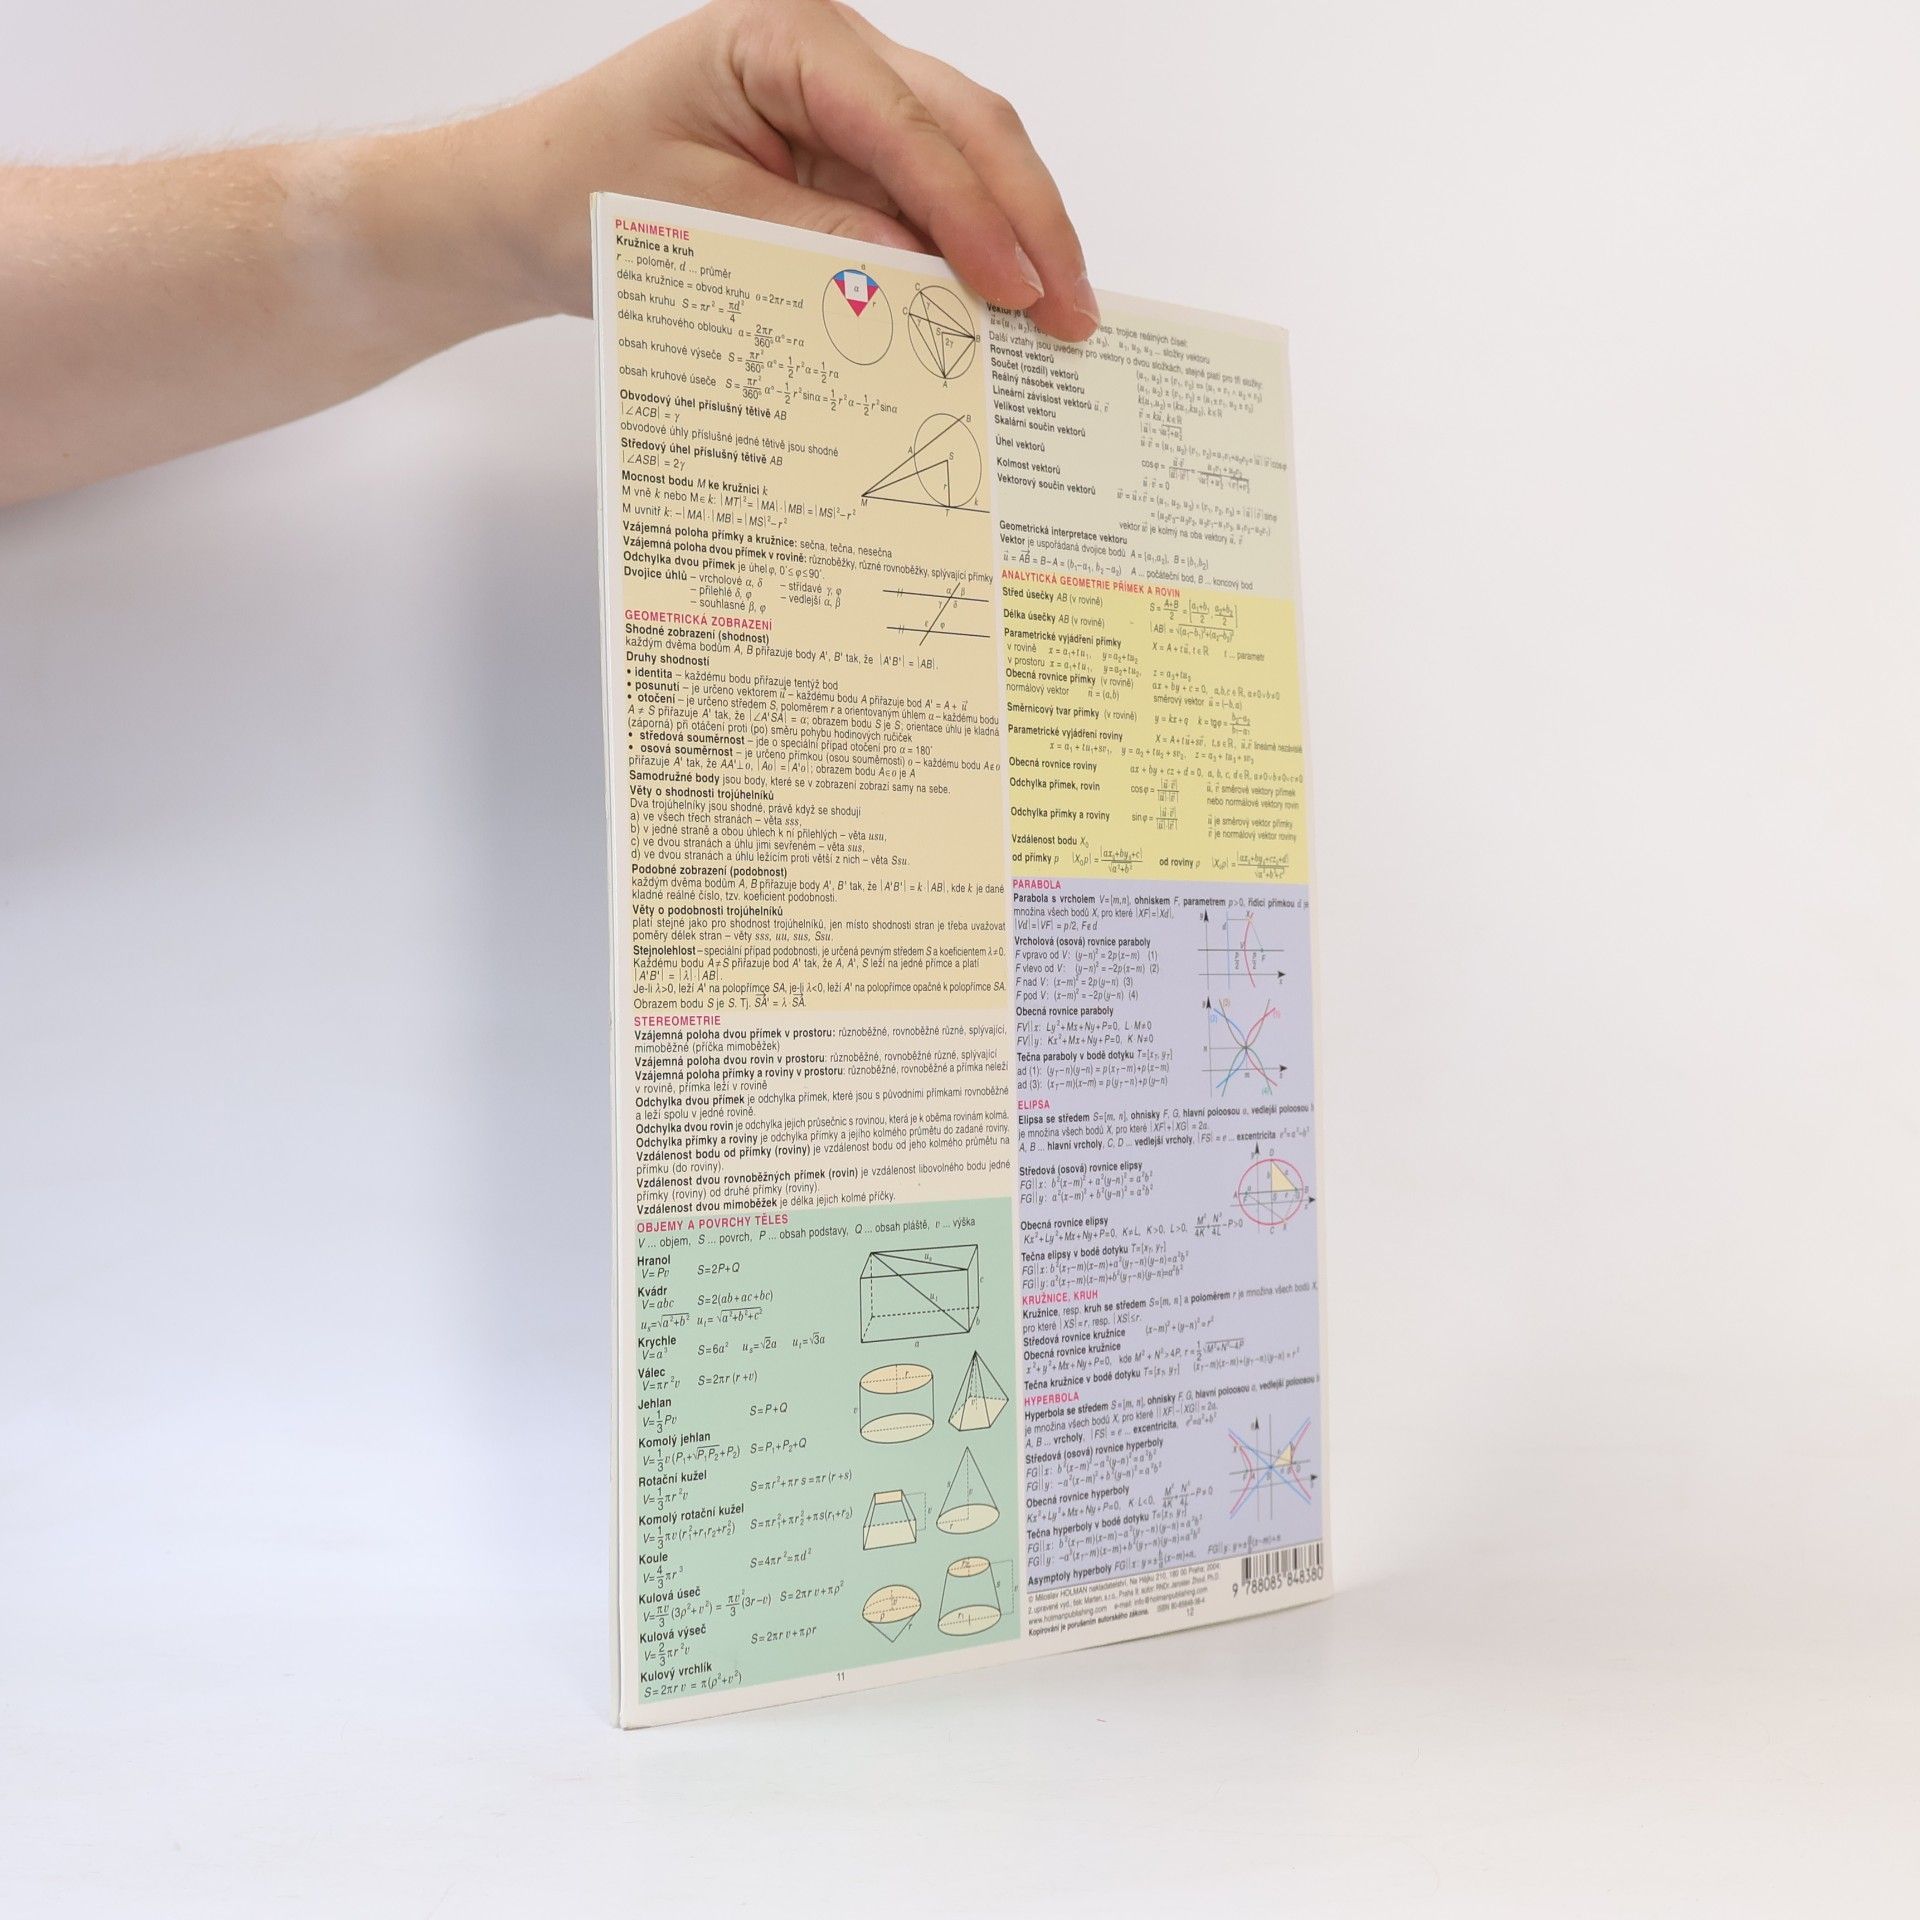 PLANIMETRIE
Kružnice a kruh
r ... poloměr, d ... průměr
délka kružnice = obvod kruhu o=2πr=πd
obsah kruhu S = πr² = πd²/4
délka kruhového oblouku a = 2πr/360° α° = rα
obsah kruhové výseče S = πr²/360° α° = 1/2 r²α = 1/2 ra
obsah kruhové úseče S = πr²/360° α° − 1/2 r² sinα = 1/2 r²α − 1/2 r² sinα
Obvodový úhel příslušný tětivě AB
|∠ACB| = γ
obvodové úhly příslušné jedné tětivě jsou shodné
Středový úhel příslušný tětivě AB
|∠ASB| = 2γ
Mocnost bodu M ke kružnici k
M vně k nebo M∈k: |MT|² = |MA|·|MB| = |MS|²−r²
M uvnitř k: −|MA|·|MB| = |MS|²−r²
Vzájemná poloha přímky a kružnice: sečna, tečna, nesečna
Vzájemná poloha dvou přímek v rovině: různoběžky, různé rovnoběžky, splývající přímky
Odchylka dvou přímek je úhel φ, 0°≤φ≤90°.
Dvojice úhlů – vrcholové α, δ – střídavé γ, φ
– přilehlé δ, φ – vedlejší α, β
– souhlasné β, φ
GEOMETRICKÁ ZOBRAZENÍ
Shodné zobrazení (shodnost)
každým dvěma bodům A, B přiřazuje body A', B' tak, že |A'B'| = |AB|.
Druhy shodností
• identita – každému bodu přiřazuje tentýž bod
• posunutí – je určeno vektorem u⃗ – každému bodu A přiřazuje bod A' = A + u⃗
• otočení – je určeno středem S, poloměrem r a orientovaným úhlem α – každému bodu
A ≠ S přiřazuje A' tak, že |∠A'SA| = α; obrazem bodu S je S; orientace úhlu je kladná
(záporná) při otáčení proti (po) směru pohybu hodinových ručiček
• středová souměrnost – jde o speciální případ otočení pro α = 180°
• osová souměrnost – je určeno přímkou (osou souměrnosti) o – každému bodu A∉o
přiřazuje A' tak, že AA'⊥o, |Ao| = |A'o|; obrazem bodu A∈o je A
Samodružné body jsou body, které se v zobrazení zobrazí samy na sebe.
Věty o shodnosti trojúhelníků
Dva trojúhelníky jsou shodné, právě když se shodují
a) ve všech třech stranách – věta sss,
b) v jedné straně a obou úhlech k ní přilehlých – věta usu,
c) ve dvou stranách a úhlu jimi sevřeném – věta sus,
d) ve dvou stranách a úhlu ležícím proti větší z nich – věta Ssu.
Podobné zobrazení (podobnost)
každým dvěma bodům A, B přiřazuje body A', B' tak, že |A'B'| = k·|AB|, kde k je dané
kladné reálné číslo, tzv. koeficient podobnosti.
Věty o podobnosti trojúhelníků
platí stejné jako pro shodnost trojúhelníků, jen místo shodnosti stran je třeba uvažovat
poměry délek stran – věty sss, uu, sus, Ssu.
Stejnolehlost – speciální případ podobnosti, je určená pevným středem S a koeficientem λ≠0.
Každému bodu A≠S přiřazuje bod A' tak, že A, A', S leží na jedné přímce a platí
|A'B'| = |λ|·|AB|.
Je-li λ>0, leží A' na polopřímce SA, je-li λ<0, leží A' na polopřímce opačné k polopřímce SA.
Obrazem bodu S je S. Tj. SA' = λ·SA.
STEREOMETRIE
Vzájemná poloha dvou přímek v prostoru: různoběžné, rovnoběžné různé, splývající,
mimoběžné (příčka mimoběžek)
Vzájemná poloha dvou rovin v prostoru: různoběžné, rovnoběžné různé, splývající
Vzájemná poloha přímky a roviny v prostoru: různoběžné, rovnoběžné a přímka neleží
v rovině, přímka leží v rovině
Odchylka dvou přímek je odchylka přímek, které jsou s původními přímkami rovnoběžné
a leží spolu v jedné rovině.
Odchylka dvou rovin je odchylka jejich průsečnic s rovinou, která je k oběma rovinám kolmá.
Odchylka přímky a roviny je odchylka přímky a jejího kolmého průmětu do zadané roviny.
Vzdálenost bodu od přímky (roviny) je vzdálenost bodu od jeho kolmého průmětu na
přímku (do roviny).
Vzdálenost dvou rovnoběžných přímek (rovin) je vzdálenost libovolného bodu jedné
přímky (roviny) od druhé přímky (roviny).
Vzdálenost dvou mimoběžek je délka jejich kolmé příčky.
OBJEMY A POVRCHY TĚLES
V ... objem, S ... povrch, P ... obsah podstavy, Q ... obsah pláště, v ... výška
Hranol
V=Pv S=2P+Q
Kvádr
V=abc S=2(ab+ac+bc)
uₛ=√a²+b² uₜ=√a²+b²+c²
Krychle
V=a³ S=6a² uₛ=√2a uₜ=√3a
Válec
V=πr²v S=2πr(r+v)
Jehlan
V=1/3 Pv S=P+Q
Komolý jehlan
V=1/3 v(P₁+√P₁P₂+P₂) S=P₁+P₂+Q
Rotační kužel
V=1/3 πr²v S=πr²+πrs=πr(r+s)
Komolý rotační kužel
V=1/3 πv(r₁²+r₁r₂+r₂²) S=πr₁²+πr₂²+πs(r₁+r₂)
Koule
V=4/3 πr³ S=4πr²=πd²
Kulová úseč
V=πv/6 (3ρ²+v²) = πv²/3 (3r−v) S=2πrv+πρ²
Kulová výseč
V=2/3 πr²v S=2πrv+πρr
Kulový vrchlík
S=2πrv = π(ρ²+v²)
11
Vektor je
resp. trojice reálných čísel:
Další vztahy jsou uvedeny pro vektory o dvou složkách, stejně platí pro tři složky:
Rovnost vektorů
Součet (rozdíl) vektorů
Reálný násobek vektoru
Lineární závislost vektorů u⃗, v⃗
Velikost vektoru
Skalární součin vektorů
Úhel vektorů
Kolmost vektorů u⃗·v⃗ = 0
Vektorový součin vektorů
vektor w⃗ je kolmý na oba vektory u⃗, v⃗
Geometrická interpretace vektoru
Vektor je uspořádaná dvojice bodů A=[a₁,a₂], B=[b₁,b₂]
u⃗ = AB = B−A = (b₁−a₁, b₂−a₂) A ... počáteční bod, B ... koncový bod
ANALYTICKÁ GEOMETRIE PŘÍMEK A ROVIN
Střed úsečky AB (v rovině) S = A+B/2 = [a₁+b₁/2, a₂+b₂/2]
Délka úsečky AB (v rovině) |AB| = √(a₁−b₁)²+(a₂−b₂)²
Parametrické vyjádření přímky X = A + tu⃗, t∈R t ... parametr
v rovině x = a₁+tu₁, y = a₂+tu₂
v prostoru x = a₁+tu₁, y = a₂+tu₂, z = a₃+tu₃
Obecná rovnice přímky (v rovině) ax + by + c = 0, a,b,c∈R, a≠0∨b≠0
normálový vektor n⃗ = (a,b) směrový vektor u⃗ = (−b,a)
Směrnicový tvar přímky (v rovině) y = kx + q k = tgφ = b₂−a₂/b₁−a₁
Parametrické vyjádření roviny X = A + tu⃗ + sv⃗, t,s∈R, u⃗,v⃗ lineárně nezávislé
x = a₁ + tu₁+sv₁, y = a₂ + tu₂ + sv₂, z = a₃ + tu₃ + sv₃
Obecná rovnice roviny ax + by + cz + d = 0, a, b, c, d∈R, a≠0∨b≠0∨c≠0
Odchylka přímek, rovin cosφ = |u⃗·v⃗|/|u⃗|·|v⃗| u⃗, v⃗ směrové vektory přímek
nebo normálové vektory rovin
Odchylka přímky a roviny sinφ = |u⃗·v⃗|/|u⃗|·|v⃗| u⃗ je směrový vektor přímky
v⃗ je normálový vektor roviny
Vzdálenost bodu X₀
od přímky p |X₀p| = |ax₀+by₀+c|/√a²+b² od roviny ρ |X₀ρ| = |ax₀+by₀+cz₀+d|/√a²+b²+c²
PARABOLA
Parabola s vrcholem V=[m,n], ohniskem F, parametrem p>0, řídicí přímkou d je
množina všech bodů X, pro které |XF|=|Xd|,
|Vd|=|VF| = p/2, F∉d
Vrcholová (osová) rovnice paraboly
F vpravo od V: (y−n)² = 2p(x−m) (1)
F vlevo od V: (y−n)² = −2p(x−m) (2)
F nad V: (x−m)² = 2p(y−n) (3)
F pod V: (x−m)² = −2p(y−n) (4)
Obecná rovnice paraboly
FV||x: Ly²+Mx+Ny+P=0, L·M≠0
FV||y: Kx²+Mx+Ny+P=0, K·N≠0
Tečna paraboly v bodě dotyku T=[x_T, y_T]
ad (1): (y_T−n)(y−n) = p(x_T−m)+p(x−m)
ad (3): (x_T−m)(x−m) = p(y_T−n)+p(y−n)
ELIPSA
Elipsa se středem S=[m, n], ohnisky F, G, hlavní poloosou a, vedlejší poloosou b
je množina všech bodů X, pro které |XF|+|XG| = 2a.
A, B ... hlavní vrcholy, C, D ... vedlejší vrcholy, |FS| = e ... excentricita e²=a²−b²
Středová (osová) rovnice elipsy
FG||x: b²(x−m)² + a²(y−n)² = a²b²
FG||y: a²(x−m)² + b²(y−n)² = a²b²
Obecná rovnice elipsy
Kx²+Ly²+Mx+Ny+P=0, K≠L, K>0, L>0, M²/4K + N²/4L − P>0
Tečna elipsy v bodě dotyku T=[x_T, y_T]
FG||x: b²(x_T−m)(x−m)+a²(y_T−n)(y−n)=a²b²
FG||y: a²(x_T−m)(x−m)+b²(y_T−n)(y−n)=a²b²
KRUŽNICE, KRUH
Kružnice, resp. kruh se středem S=[m, n] a poloměrem r je množina všech bodů X,
pro které |XS|=r, resp. |XS|≤r.
Středová rovnice kružnice (x−m)²+(y−n)²=r²
Obecná rovnice kružnice
x²+y²+Mx+Ny+P=0, kde M²+N²>4P, r=1/2 √M²+N²−4P
Tečna kružnice v bodě dotyku T=[x_T, y_T] (x_T−m)(x−m)+(y_T−n)(y−n)=r²
HYPERBOLA
Hyperbola se středem S=[m, n], ohnisky F, G, hlavní poloosou a, vedlejší poloosou b
je množina všech bodů X, pro které ||XF|−|XG|| = 2a.
A, B ... vrcholy, |FS| = e ... excentricita, e²=a²+b²
Středová (osová) rovnice hyperboly
FG||x: b²(x−m)²−a²(y−n)²=a²b²
FG||y: −a²(x−m)²+b²(y−n)²=a²b²
Obecná rovnice hyperboly
Kx²+Ly²+Mx+Ny+P=0, K·L<0, M²/4K + N²/4L − P≠0
Tečna hyperboly v bodě dotyku T=[x_T, y_T]
FG||x: b²(x_T−m)(x−m)−a²(y_T−n)(y−n)=a²b²
FG||y: −a²(x_T−m)(x−m)+b²(y_T−n)(y−n)=a²b²
Asymptoty hyperboly
© Miloslav HOLMAN nakladatelství, Na Hájku 210, 180 00 Praha, 2004,
www.holmanpublishing.com e-mail: info@holmanpublishing.com ISBN 80-85848-38-4
Kopírování je porušením autorského zákona.
12
9 788085 848380